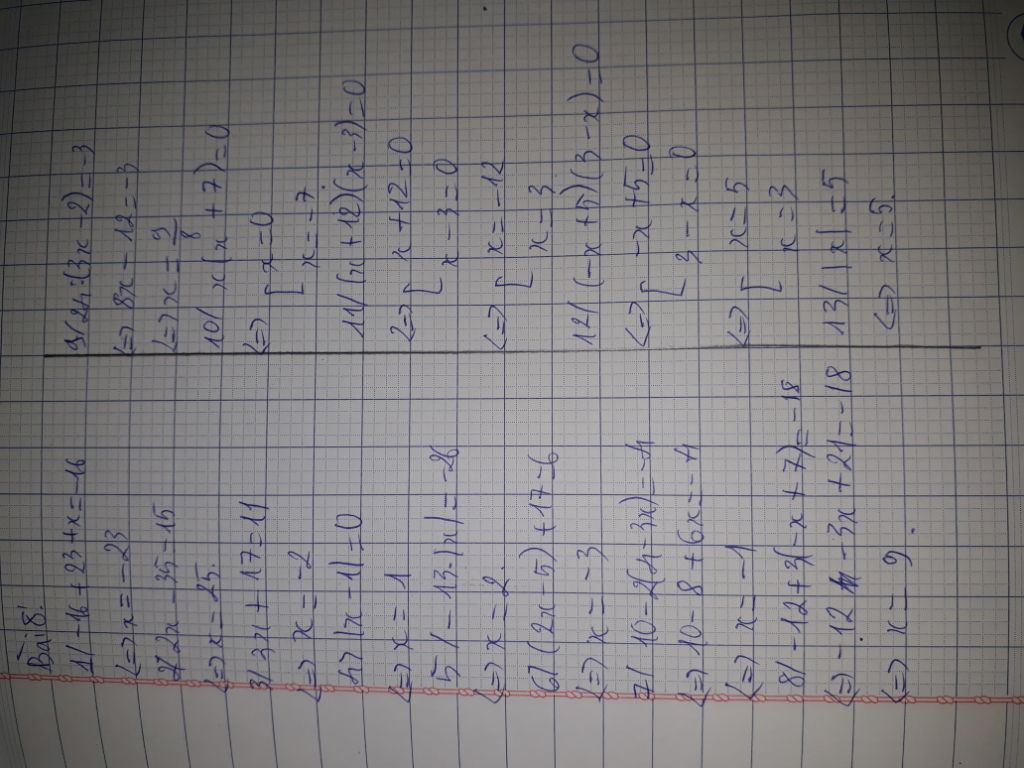 Bài 8:
1/ -16 + 23 + x = -16
<=> x = -23
2/ 2x - 35 = 15
<=> x = 25.
3/ 3x + 17 = 11
<=> x = -2
4/ |x - 1| = 0
<=> x = 1
5/ -13.|x| = -26
<=> x = 2.
6/ (2x - 5) + 17 = 6
<=> x = -3
7/ 10 - 2(4 - 3x) = -4
<=> 10 - 8 + 6x = -4
<=> x = -1
8/ -12 + 3(-x + 7) = -18
<=> -12 - 3x + 21 = -18
<=> x = 9.
9/ 24:(3x - 2) = -3
<=> 8x - 12 = -3
<=> x = 9/8
10/ x(x + 7) = 0
<=> [ x = 0
x = -7
11/ (x + 12)(x - 3) = 0
<=> [ x + 12 = 0
x - 3 = 0
<=> [ x = -12
x = 3
12/ (-x + 5)(3 - x) = 0
<=> [ -x + 5 = 0
3 - x = 0
<=> [ x = 5
x = 3
13/ |x| = 5
<=> x = 5.